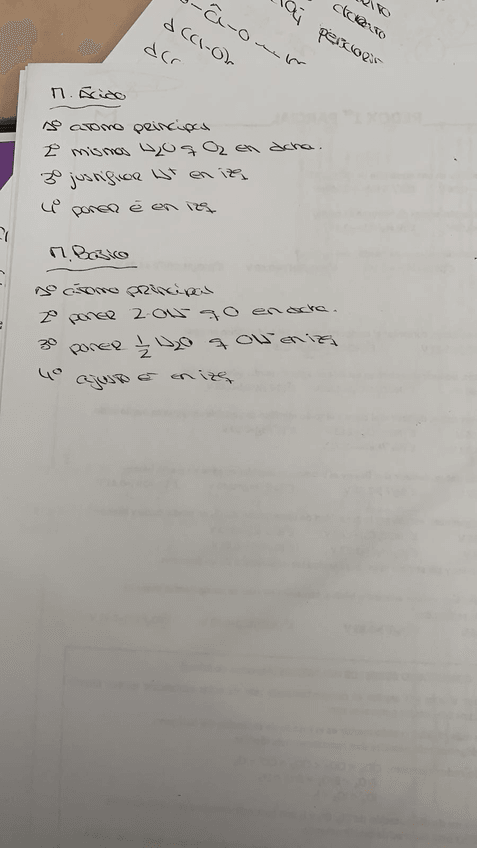 -Cl-O
clorito
perclorin
M. Ácido
1º átomo principal
2º mismos H2O q O2 en dcha.
3º justificar H+ en izq
4º poner e- en izq
M. Básico
1º átomo principal
2º poner 2·OH- q O en dcha.
3º poner 1/2 H2O q OH- en izq
4º ajusto e- en izq